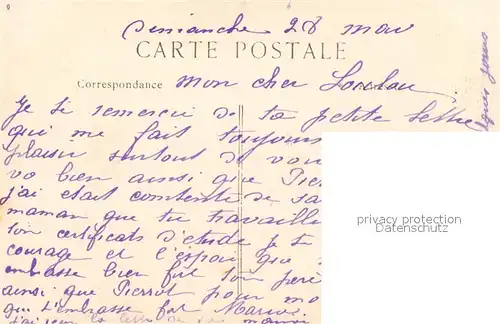 Dimanche 28 mai
CARTE POSTALE
Correspondance mon cher
Je te remerci de ta petite lettre
qui me fait toujours
plaisir surtout de vous
vo bien ainsi que Pier
j'ai etait contente de sa
maman que tu travaille
ton certificats d'etude je te
courage et l'espoir que
embrasse bien fort ton pere
ainsi que Pierrot pour mo
qui t'embrasse fort Marine
j'ai
privacy protection
Datenschutz